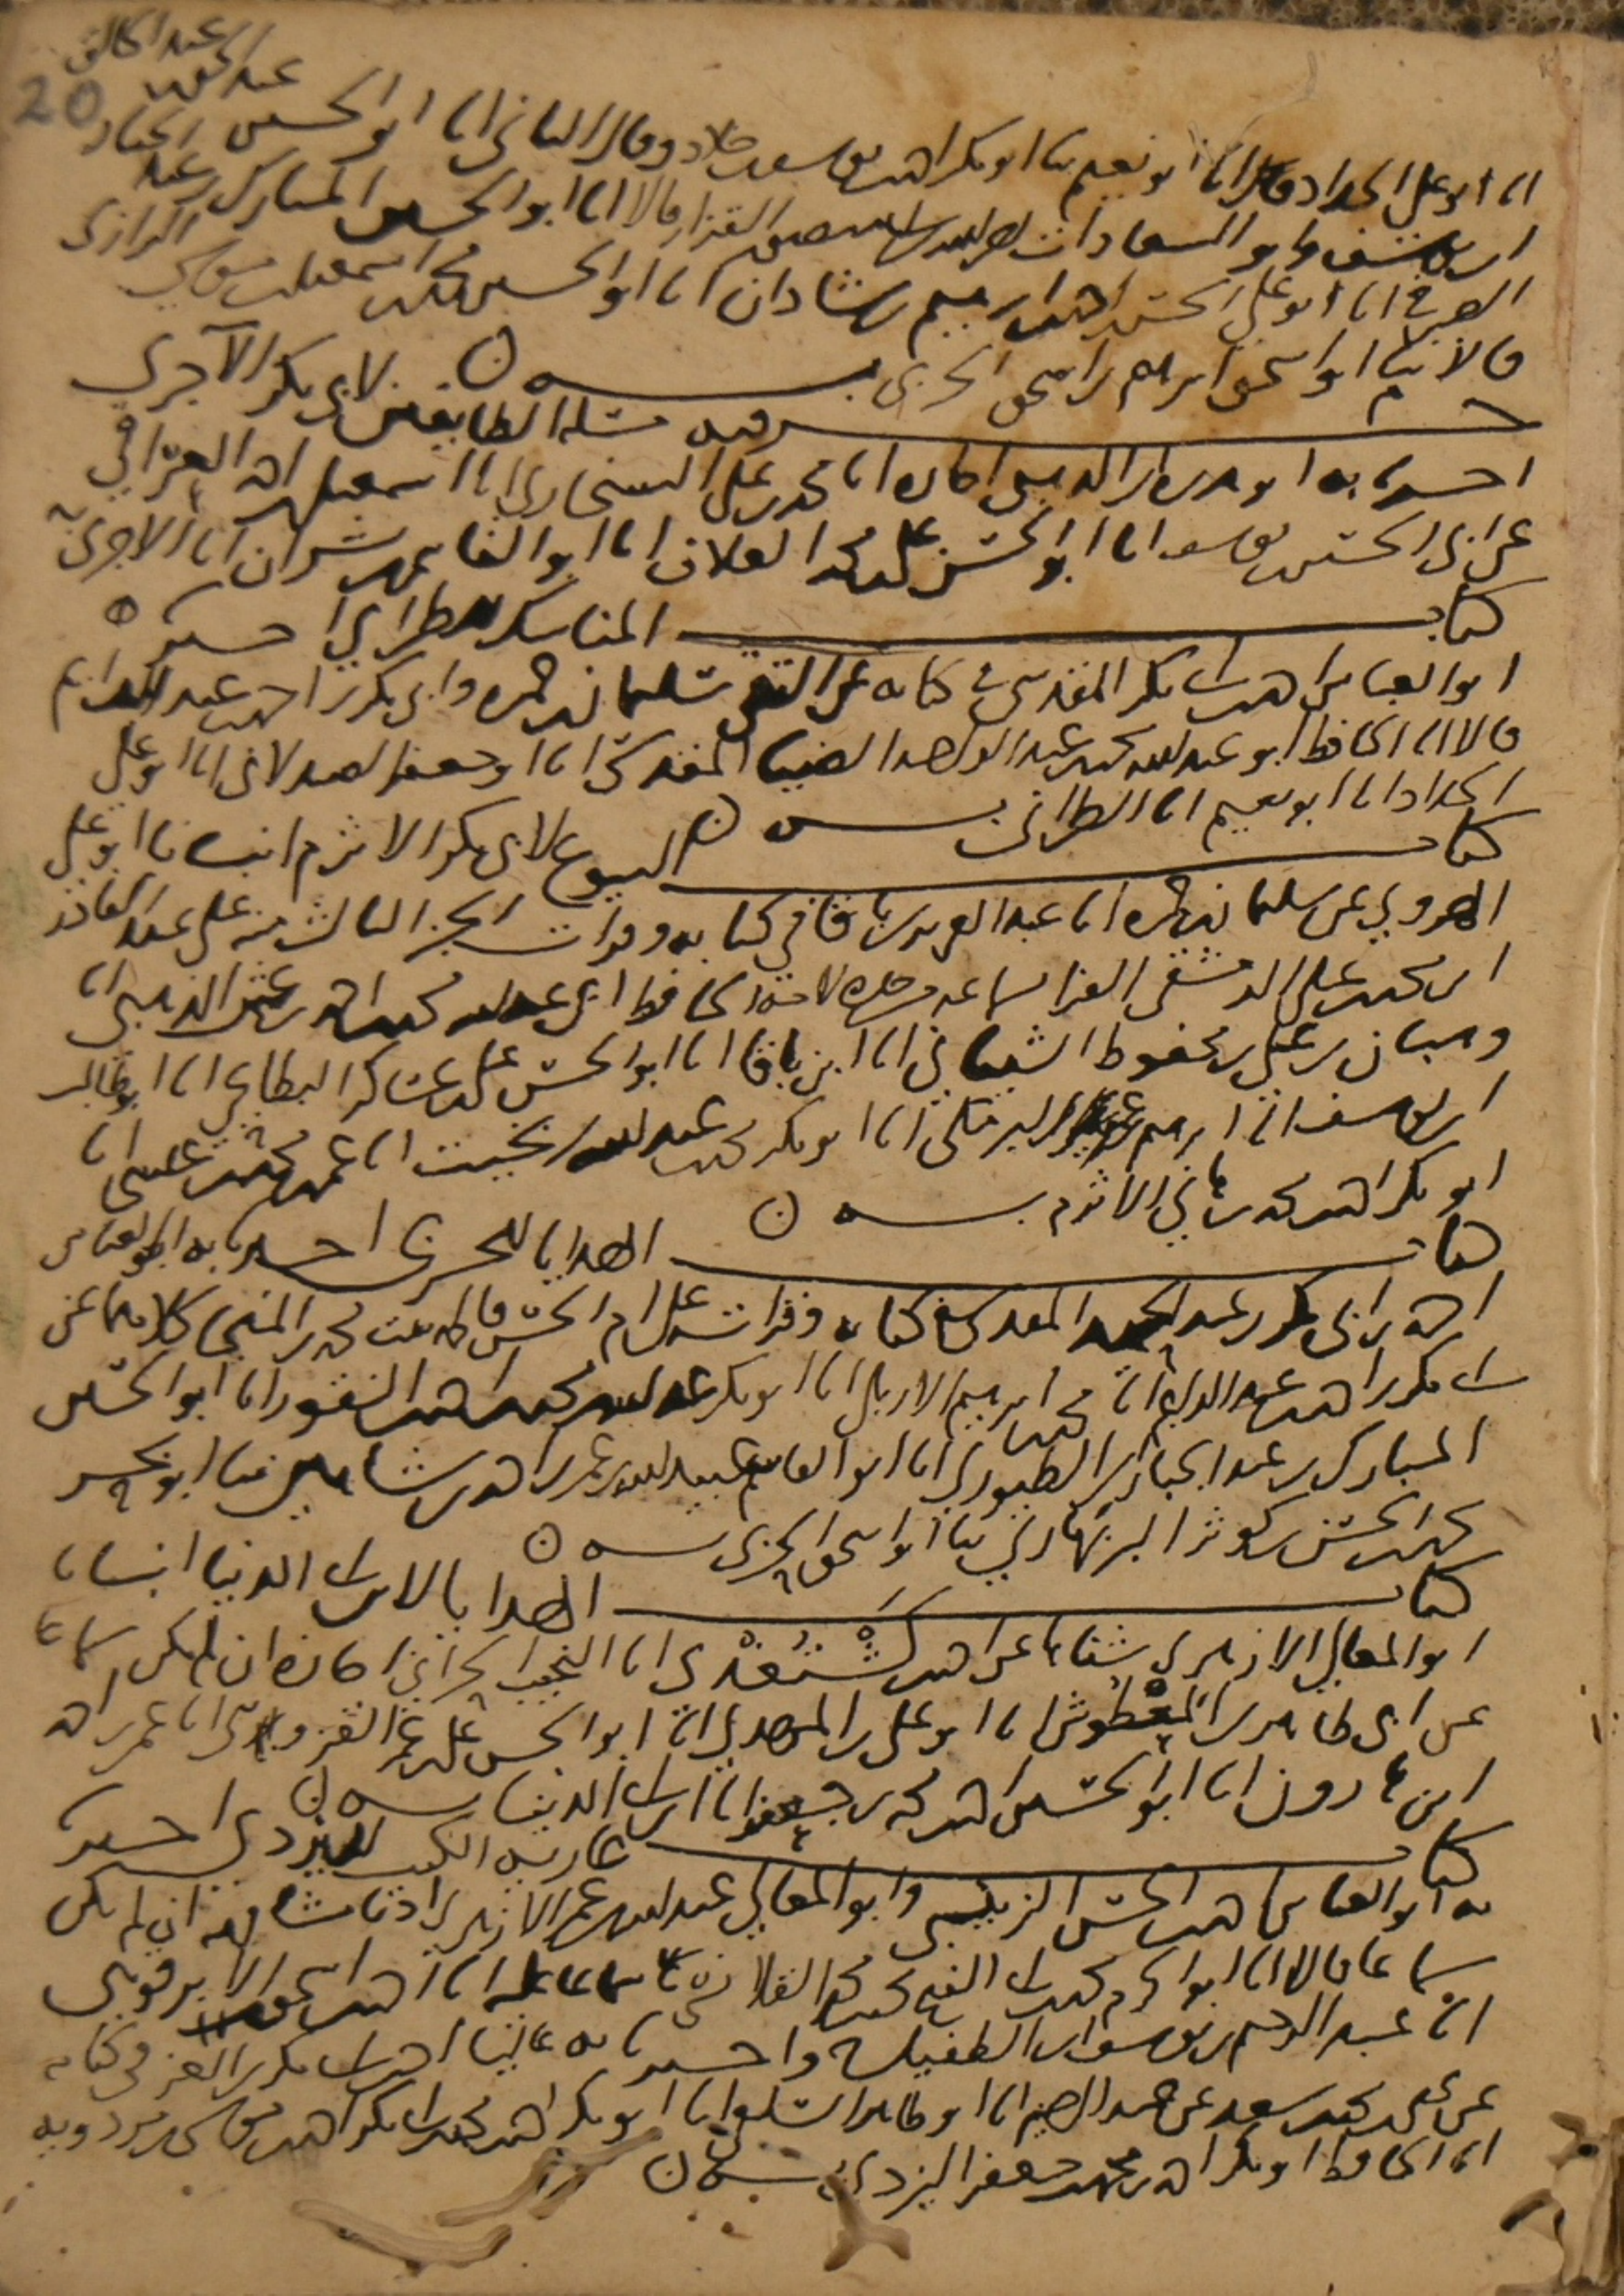 عبد الخالق
20
انا ابو علي الحداد انا ابو نعيم ثنا ابو بكر احمد بن يوسف بن خلاد وقال الثاني انا ابو الحسين عبد الحق
ابن يوسف وابو السعادات نصر الله بن القزاز قالا انا ابو الحسين المبارك بن عبد الجبار
الصيرفي انا ابو علي الحسن بن احمد بن ابرهيم بن شاذان انا ابو الحسين محمد بن اسمعيل بن موسى الرازي
قالا ثنا ابو اسحق ابرهيم بن اسحق الحربي به ن
جزء فيه مسئلة الطائفين لابي بكر الآجري
اخبرنا به ابو هريرة بن الذهبي اجازة انا محمد بن علي انا اسمعيل بن احمد العراقي
عن ابي الحسين بن يوسف انا ابو الحسن علي بن محمد العلاف انا ابو القاسم بن بشران انا الاجري به
كتاب المناسك للطبراني اخبرنا به
ابو العباس احمد بن ابي بكر المقدسي في كتابه عن التقي سليمان بن حمزة وابي بكر بن احمد بن عبد الدايم
قالا انا الحافظ ابو عبد الله محمد بن عبد الواحد الضيا المقدسي انا ابو جعفر الصيدلاني انا ابو علي
الحداد انا ابو نعيم انا الطبراني به ن
كتاب البيوع لابي بكر الاثرم انبانا ابو علي
المهدوي عن سليمان بن حمزة انا عبد العزيز بن باقا في كتابه وقرات الجزء الثالث منه على عبد القادر
ابن محمد بن علي الدمشقي الفرا بسماعه من جده لامه الحافظ ابي عبد الله محمد بن احمد بن عثمن الذهبي انا
وهبان بن علي بن محفوظ الشيباني انا ابن باقا انا ابو الحسن علي بن عساكر البطايحي انا ابو طالب
ابن يوسف انا ابرهيم بن عمر البرمكي انا ابو بكر محمد بن عبد الله بن بخيت انا عمر بن محمد بن عيسى انا
ابو بكر احمد بن محمد بن هاني الاثرم به ن
كتاب الهدايا للحربي اخبرنا به ابو العباس
احمد بن ابي بكر بن عبد الحميد المقدسي في كتابه وقرات على ام الحسن فاطمة بنت محمد بن المنجا كلاهما عن
ابي بكر بن احمد بن عبد الدايم انا محمد بن ابرهيم الاربلي انا ابو بكر عبد الله بن محمد بن احمد بن النقور انا ابو الحسين
المبارك بن عبد الجبار بن الطيوري انا ابو القاسم عبيد الله بن عمر بن احمد بن شاهين ثنا ابو بحر
محمد بن الحسن بن كوثر البربهاري ثنا ابو اسحق الحربي به ن
كتاب الهدايا لابن ابي الدنيا انبانا
ابو المعالي الازهري شفاها عن احمد بن كشتغدي انا النجيب الحراني اجازة ان لم يكن سماعا
عن ابي طاهر بن المعطوش انا ابو علي بن المهدي انا ابو الحسن علي بن عمر القزويني انا عمر بن احمد
ابن هارون انا ابو الحسين احمد بن محمد بن جعفر انا ابن ابي الدنيا به ن
كتاب عارية الكتب لليزدي اخبرنا
به ابو العباس احمد بن الحسن الزينبي وابو المعالي عبد الله بن عمر الازهري اذنا مشافهة ان لم يكن
سماعا قالا انا ابو الحرم محمد بن ابي الفتح محمد بن محمد القلانسي سماعا عليه انا احمد بن اسحق الابرقوهي
انا عبد الرحيم بن يوسف بن الطفيل واخبرنا به عاليا احمد بن ابي بكر بن العز في كتابه
عن يحيى بن محمد بن سعد عن انا ابو طاهر السلفي انا ابو بكر احمد بن محمد بن ابي بكر احمد بن موسى بن مردويه
انا الحافظ ابو بكر احمد بن محمد بن جعفر اليزدي به ن